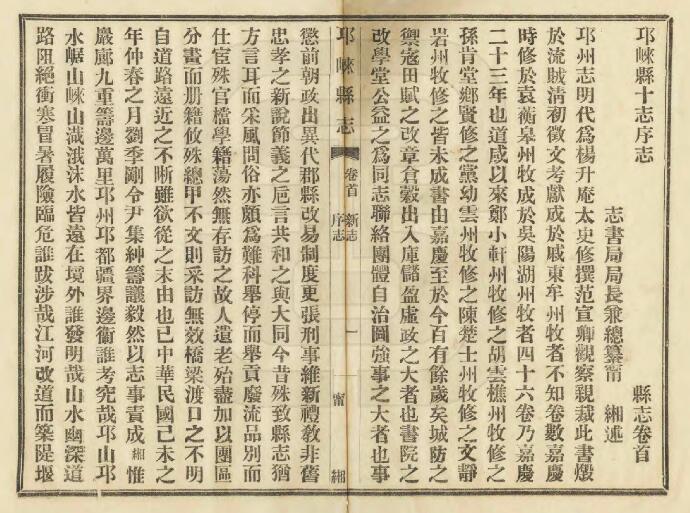 邛崍縣十志序志　　　　　　　縣志卷首
志書局局長兼總纂甯　緗述
邛州志明代爲楊升庵太史修撰范宣卿觀察親裁此書燬
於流賊清初徵文考獻成於戚東牟州牧者不知卷數嘉慶
時修於袁蘅皐州牧成於吳陽湖州牧者四十六卷乃嘉慶
二十三年也道咸以來鄭小軒州牧修之胡雲樵州牧修之
孫肯堂鄉賢修之黨幼雲州牧修之陳楚士州牧修之文靜
岩州牧修之皆未成書由嘉慶至於今百有餘歲矣城防之
禦寇田賦之改章倉穀出入庫儲盈虛政之大者也書院之
改學堂公益之爲同志聯絡團體自治圖強事之大者也事
邛崍縣志　卷首　新志　序志　一　甯　緗
懲前朝政出異代郡縣改易制度更張刑事維新禮敎非舊
忠孝之新說節義之巵言共和之與大同今昔殊致縣志猶
方言耳而宋風問俗亦頗爲難科舉停而舉貢廢流品別而
仕宦殊官檔學籍蕩然無存訪之故人遺老殆盡加以團區
分畫而册籍攸殊總甲不文則采訪無效橋梁渡口之不明
自道路遠近之不晰雖欲從之末由也已中華民國己未之
年仲春之月劉季剛令尹集紳籌議毅然以志事責成緗惟
嚴廊九重籌邊萬里邛州邛都疆界邊衞誰考究哉邛山邛
水崌山崍山濊涐沫水皆遠在境外誰發明哉山水幽深道
路阻絕衝寒冒暑履險臨危誰跋涉哉江河改道而築隄堰